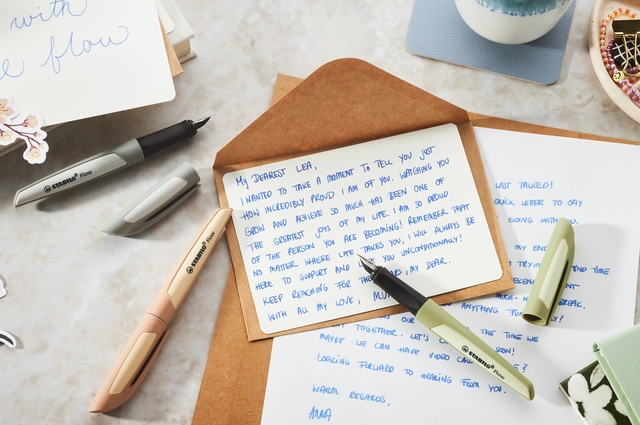 with
e flow
STABILO flow
My DEAREST LEA,
I WANTED TO TAKE A MOMENT TO TELL YOU JUST
HOW INCREDIBLY PROUD I AM OF YOU. WATCHING YOU
GROW AND ACHIEVE SO MUCH HAS BEEN ONE OF
THE GREATEST JOYS OF MY LIFE. I AM SO PROUD
OF THE PERSON YOU ARE BECOMING! REMEMBER THAT
NO MATTER WHERE LIFE TAKES YOU, I WILL ALWAYS BE
HERE TO SUPPORT AND LOVE YOU UNCONDITIONALLY!
KEEP REACHING FOR THE STARS, MY DEAR.
WITH ALL MY LOVE, MUM
STABILO flow
LAST TALKED!
QUICK LETTER TO SAY
GOING WITH YOU.
MY
TIME
BREAK.
OUR THE TIME WE
TOGETHER. LET'S SOON!
MAYBE WE CAN HAVE VIDEO CALL ?
LOOKING FORWARD TO HEARING FROM YOU.
WARM REGARDS,
ANNA
STABILO flow